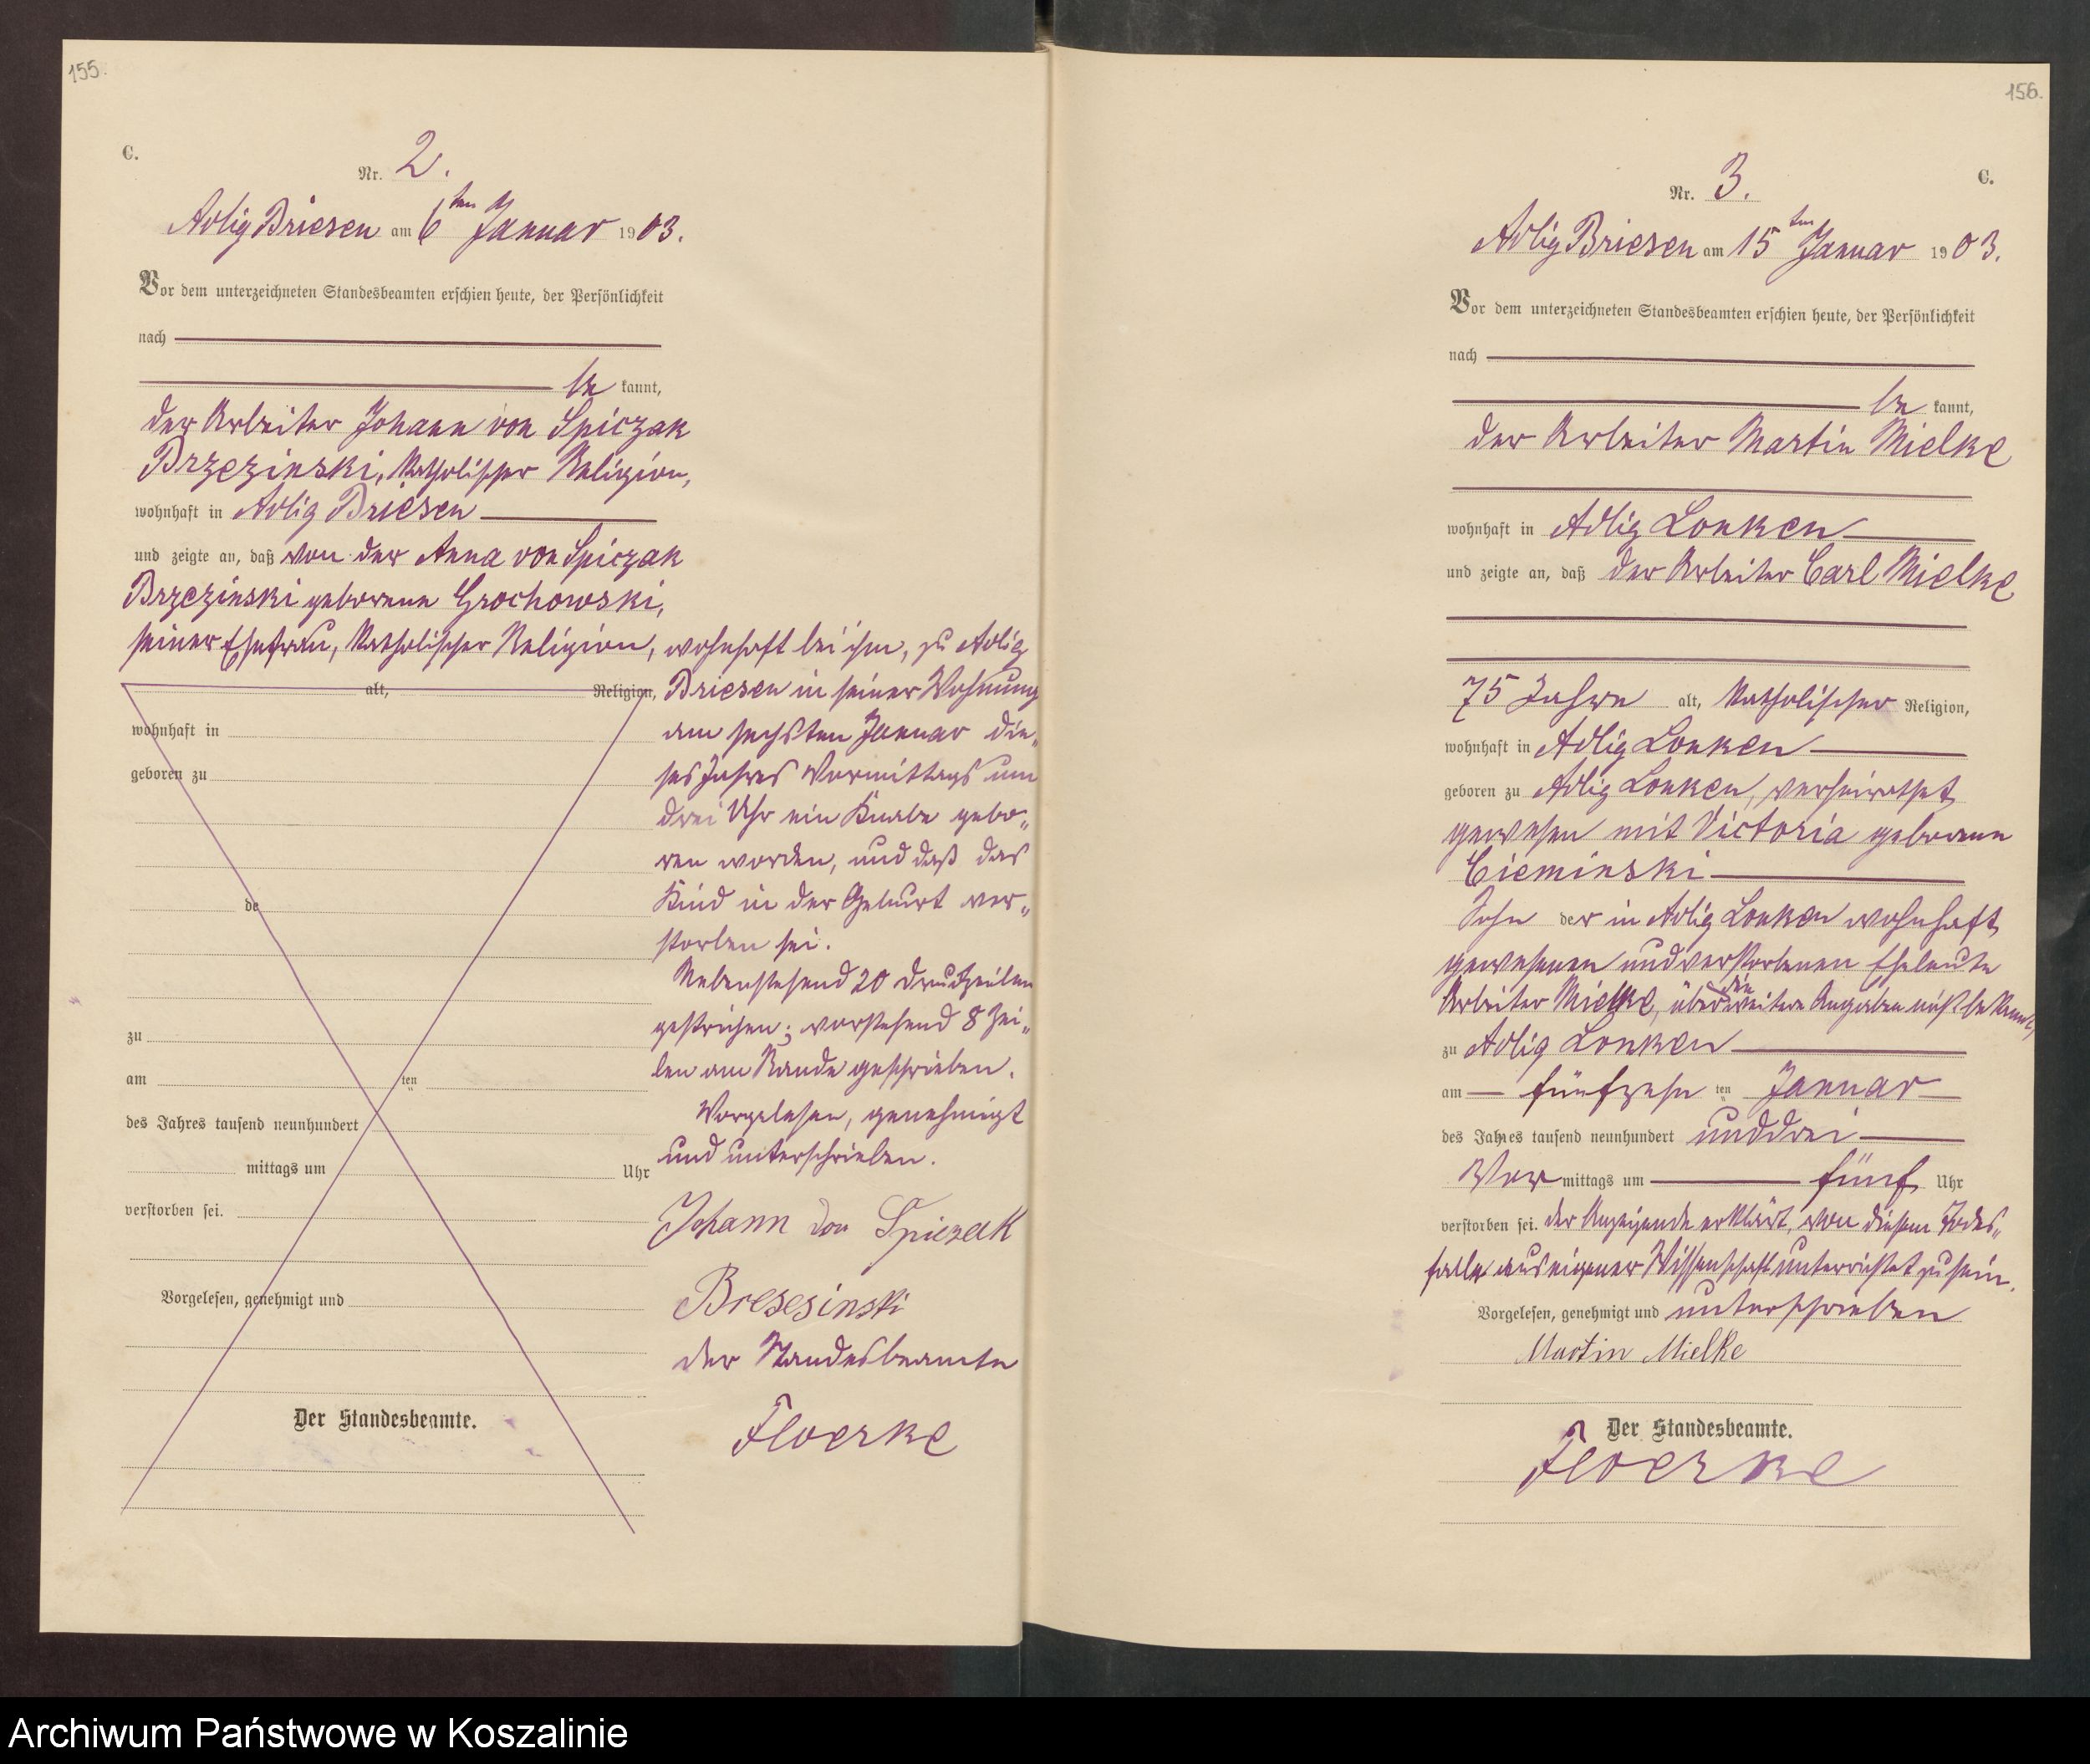 155.
C.
Nr. 2.
Adlig Briesen am 6ten Januar 1903.
Vor dem unterzeichneten Standesbeamten erschien heute, der Persönlichkeit
nach
be kannt,
der Arbeiter Johann von Spiczak
Brzezinski, katholischer Religion,
wohnhaft in Adlig Briesen
und zeigte an, daß von der Anna von Spiczak
Brzezinski geborene Grochowski,
seiner Ehefrau, katholischer Religion, wohnhaft bei ihm, zu Adlig
alt, Religion,
wohnhaft in
geboren zu
de
zu
am ten
des Jahres tausend neunhundert
mittags um Uhr
verstorben sei.
Vorgelesen, genehmigt und
Der Standesbeamte.
Briesen in seiner Wohnung
am sechsten Januar die„
ses Jahres Vormittags um
drei Uhr ein Knabe gebo„
ren worden, und daß das
Kind in der Geburt ver„
storben sei.
Nebenstehend 20 Druckzeilen
gestrichen; vorstehend 8 Zei„
len am Rande geschrieben.
Vorgelesen, genehmigt
und unterschrieben.
Johann von Spiczak
Bresesinski
der Standesbeamte
Floerke
156.
C.
Nr. 3.
Adlig Briesen am 15ten Januar 1903.
Vor dem unterzeichneten Standesbeamten erschien heute, der Persönlichkeit
nach
be kannt,
der Arbeiter Martin Mielke
wohnhaft in Adlig Lonken
und zeigte an, daß der Arbeiter Carl Mielke
75 Jahre alt, katholischer Religion,
wohnhaft in Adlig Lonken
geboren zu Adlig Lonken, verheirathet
gewesen mit Victoria geborene
Cieminski
Sohn der in Adlig Lonken wohnhaft
gewesenen und verstorbenen Eheleute
Arbeiter Mielke, über die weitere Angaben nicht bekannt,
zu Adlig Lonken
am fünfzehn ten Januar
des Jahres tausend neunhundert und drei
Vor mittags um fünf Uhr
verstorben sei. der Anzeigende erklärt, von diesem Todes„
falle aus eigener Wissenschaft unterrichtet zu sein.
Vorgelesen, genehmigt und unterschrieben
Martin Mielke
Der Standesbeamte.
Floerke
Archiwum Państwowe w Koszalinie